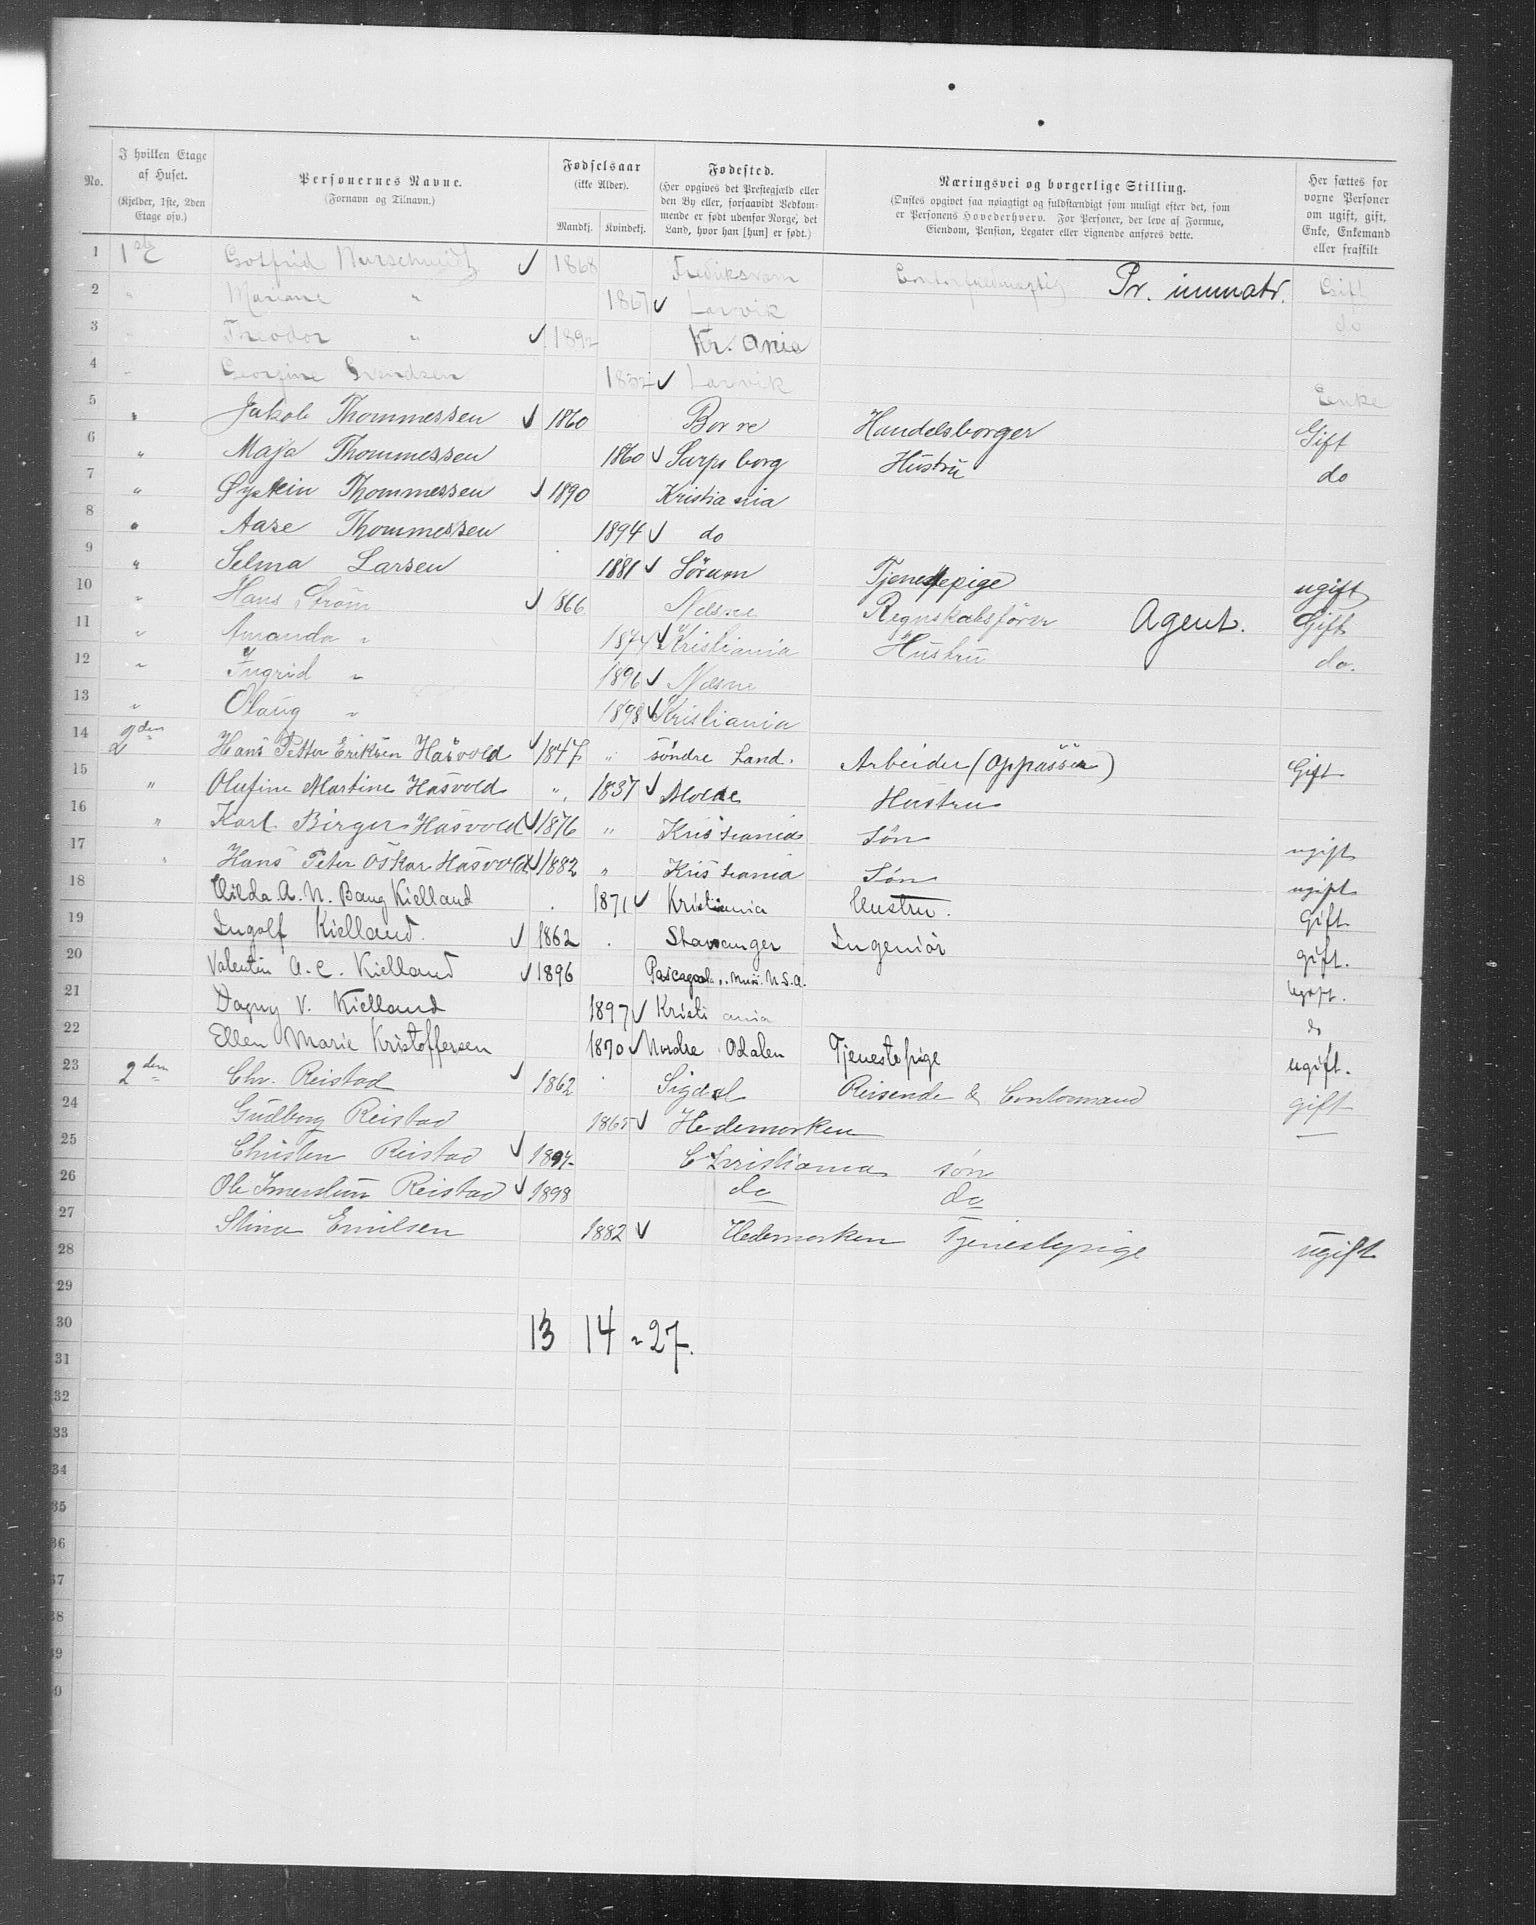 No. | I hvilken Etage af Huset. (Kjelder, 1ste, 2den Etage osv.) | Personernes Navne. (Fornavn og Tilnavn.) | Fødselsaar (ikke Alder). Mandkj. Kvindekj. | Fødested. (Her opgives det Prestegjæld eller den By eller, forsaavidt Vedkommende er født udenfor Norge, det Land, hvor han [hun] er født.) | Næringsvei og borgerlige Stilling. (Ønskes opgivet saa nøiagtigt og fuldstændigt som muligt efter det, som er Personens Hovederhverv. For Personer, der leve af Formue, Eiendom, Pension, Legater eller Lignende anføres dette.) | Her sættes for voxne Personer om ugift, gift, Enke, Enkemand eller fraskilt
1 1ste E Gotfrid ✓ 1868 Fredriksværn Pr. immatr. Gift
2 " Mariane " 1867 ✓ Larvik do
3 " Theodor " ✓ 1892 Kr. ania
4 " Georgine Svendsen ✓ Larvik Enke
5 " Jakob Thommessen ✓ 1860 Borre Handelsborger Gift
6 " Maja Thommessen 1860 ✓ Sarpsborg Hustru do
7 " Øystein Thommessen ✓ 1890 Kristiania
8 " Aase Thommessen 1894 ✓ do
9 " Selma Larsen 1881 ✓ Sörum Tjenestepige ugift
10 " Hans Strøm ✓ 1866 Nesne Regnskabsfører Agent. Gift
11 " Amanda " 1874 ✓ Kristiania Hustru do.
12 " Ingrid " 1896 ✓ Nesne
13 " Olaug " 1898 ✓ Kristiania
14 2den Hans Petter Eriksen Hasvold ✓ 1847 " søndre Land. Arbeider (Oppasser) Gift
15 " Olufine Martine Hasvold " 1837 ✓ Molde Hustru
16 " Karl Birger Hasvold ✓ 1876 " Kristiania Søn ugift
17 " Hans Peter Oskar Hasvold ✓ 1882 " Kristiania Søn ugift
18 Hilda A. N. Bang Kielland 1871 ✓ Kristiania Hustru. gift
19 Ingolf Kielland. ✓ 1862 Stavanger Ingeniør gift.
20 Valentin A. C. Kielland ✓ 1896 Pascagoula, Miss. U.S.A. Ugift.
21 Dagny V. Kielland 1897 ✓ Kristiania do
22 Ellen Marie Kristoffersen 1870 ✓ Nordre Odalen Tjenestepige ugift.
23 2den Chr. Reistad ✓ 1862 Sigdal Reisende & Contormand gift
24 Gudborg Reistad 1865 ✓ Hedemarken —
25 Christen Reistad ✓ 1894 Christiania søn
26 Ole Reistad ✓ 1898 do do
27 Stina Emilsen 1882 ✓ Hedemarken Tjenestepige ugift
28
29
30 13 14 = 27.
31
32
33
34
35
36
37
38
39
40